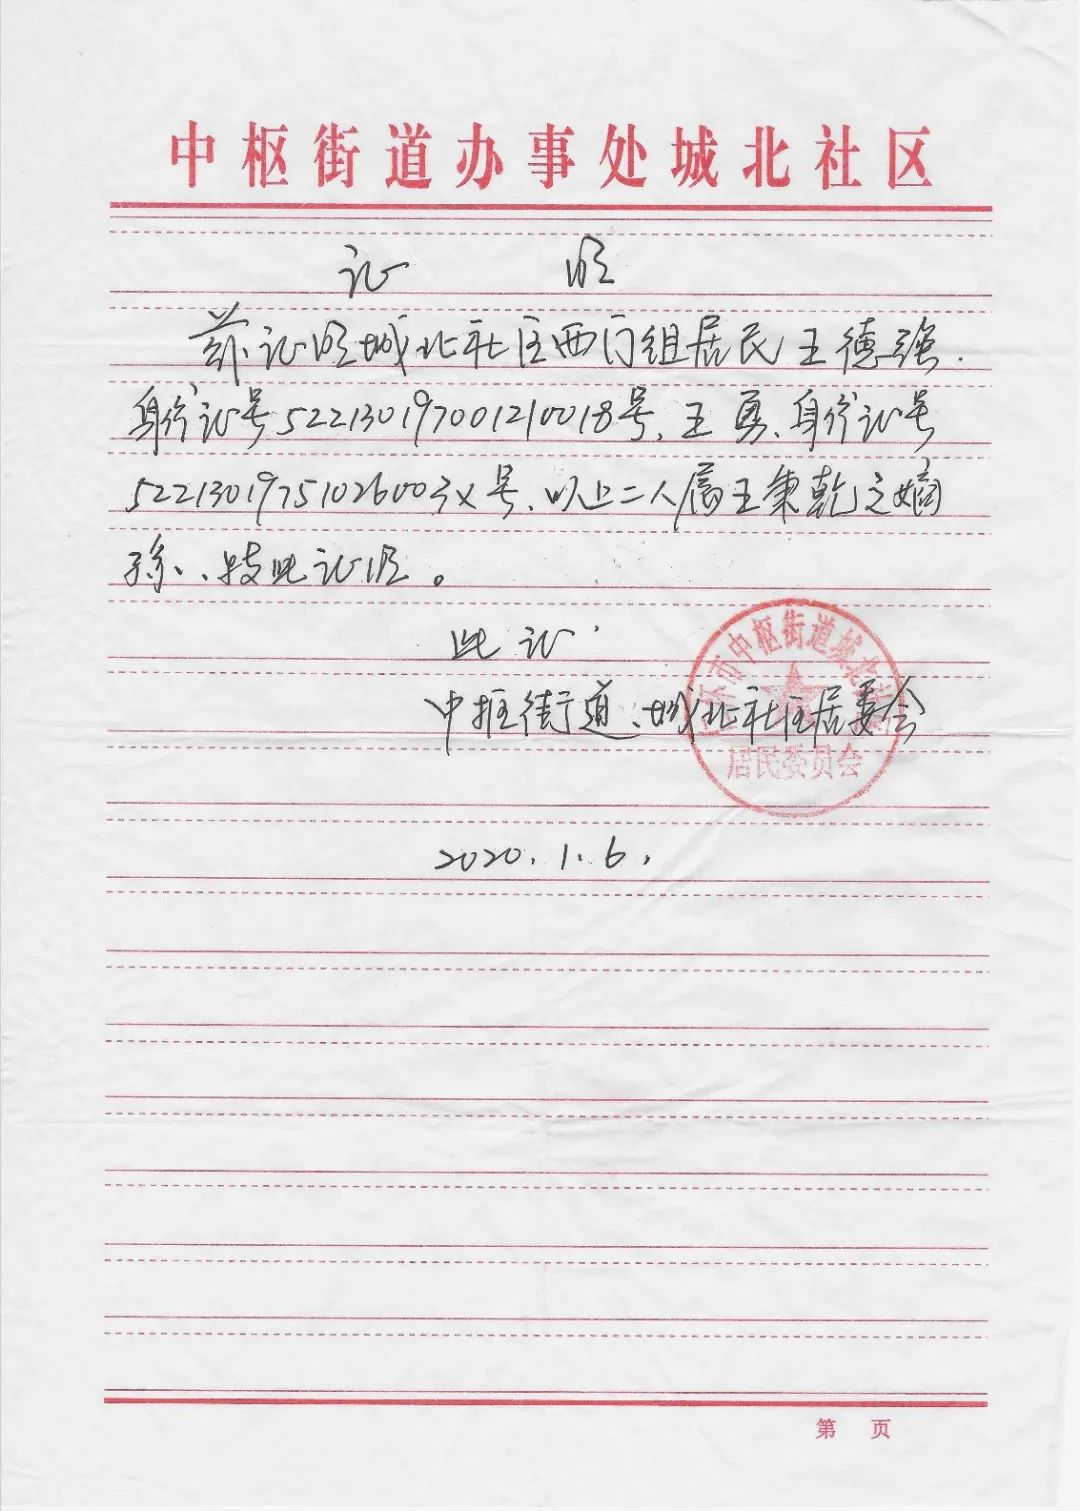 中枢街道办事处城北社区
证 明
兹证明城北社区西门组居民王德强.
身份证号522130197001210018号、王勇、身份证号
52213019751026003X号、以上二人属王秉乾之嫡
孙、、特此证明。
此证
中枢街道、城北社区居委会
仁怀市中枢街道城北社区
居民委员会
2020.1.6.
第 页